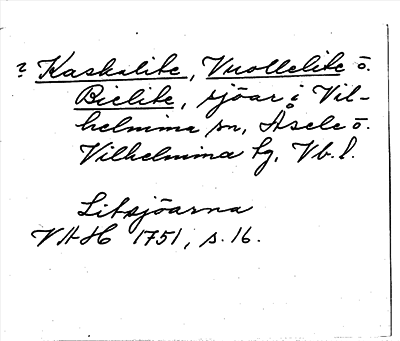 ? Kaskalite, Vuollelite o.
Bielite, sjöar i Vil-
helmina sn, Åsele o.
Vilhelmina tg, Vb. l.
Litsjöarna
VAH 1751, s. 16.